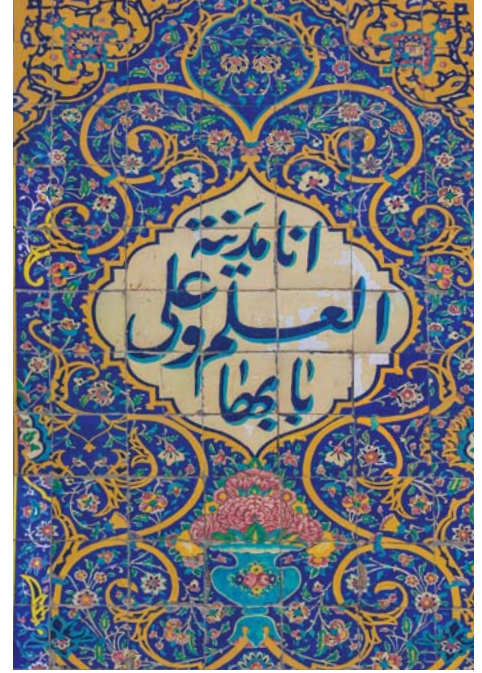 انا مدینة
العلم وعلی
بابها